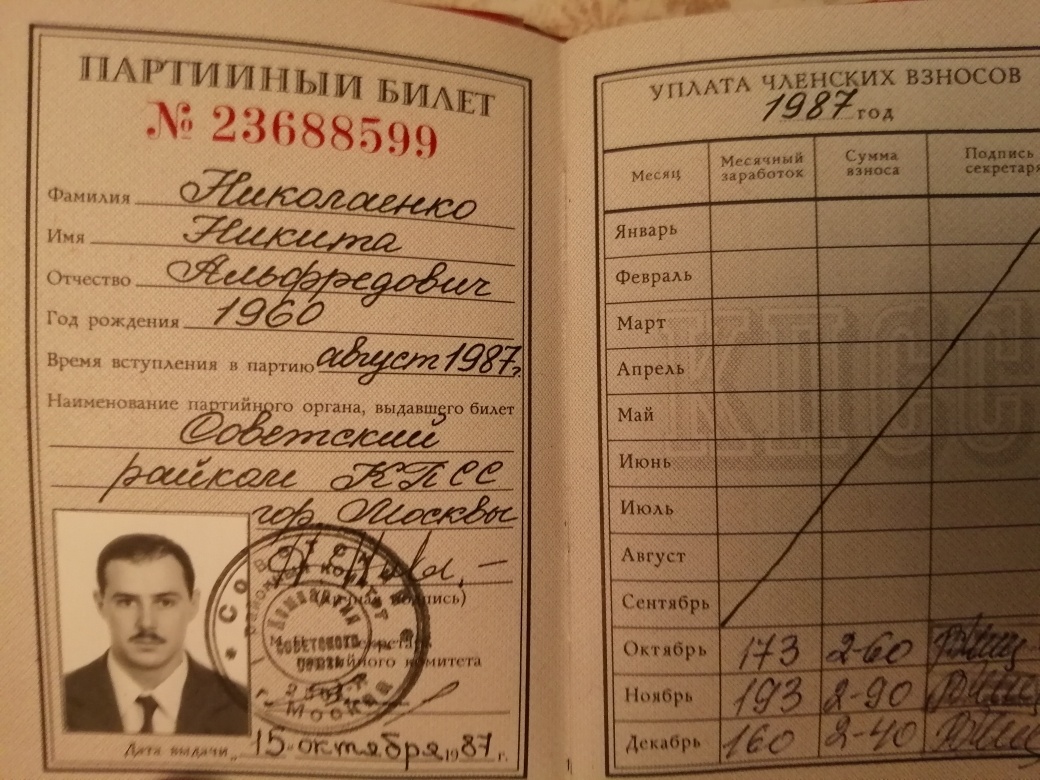 ПАРТИЙНЫЙ БИЛЕТ
№ 23688599
Фамилия Николаенко
Имя Никита
Отчество Альфредович
Год рождения 1960
Время вступления в партию август 1987г.
Наименование партийного органа, выдавшего билет
Советский
райком КПСС
гор. Москвы
(личная подпись)
М.П. Секретарь
партийного комитета
Дата выдачи 15 октября 1987 г.
УПЛАТА ЧЛЕНСКИХ ВЗНОСОВ
1987 год
Месяц Месячный заработок Сумма взноса Подпись секретаря
Январь
Февраль
Март
Апрель
Май
Июнь
Июль
Август
Сентябрь
Октябрь 173 2-60
Ноябрь 193 2-90
Декабрь 160 2-40
КПСС